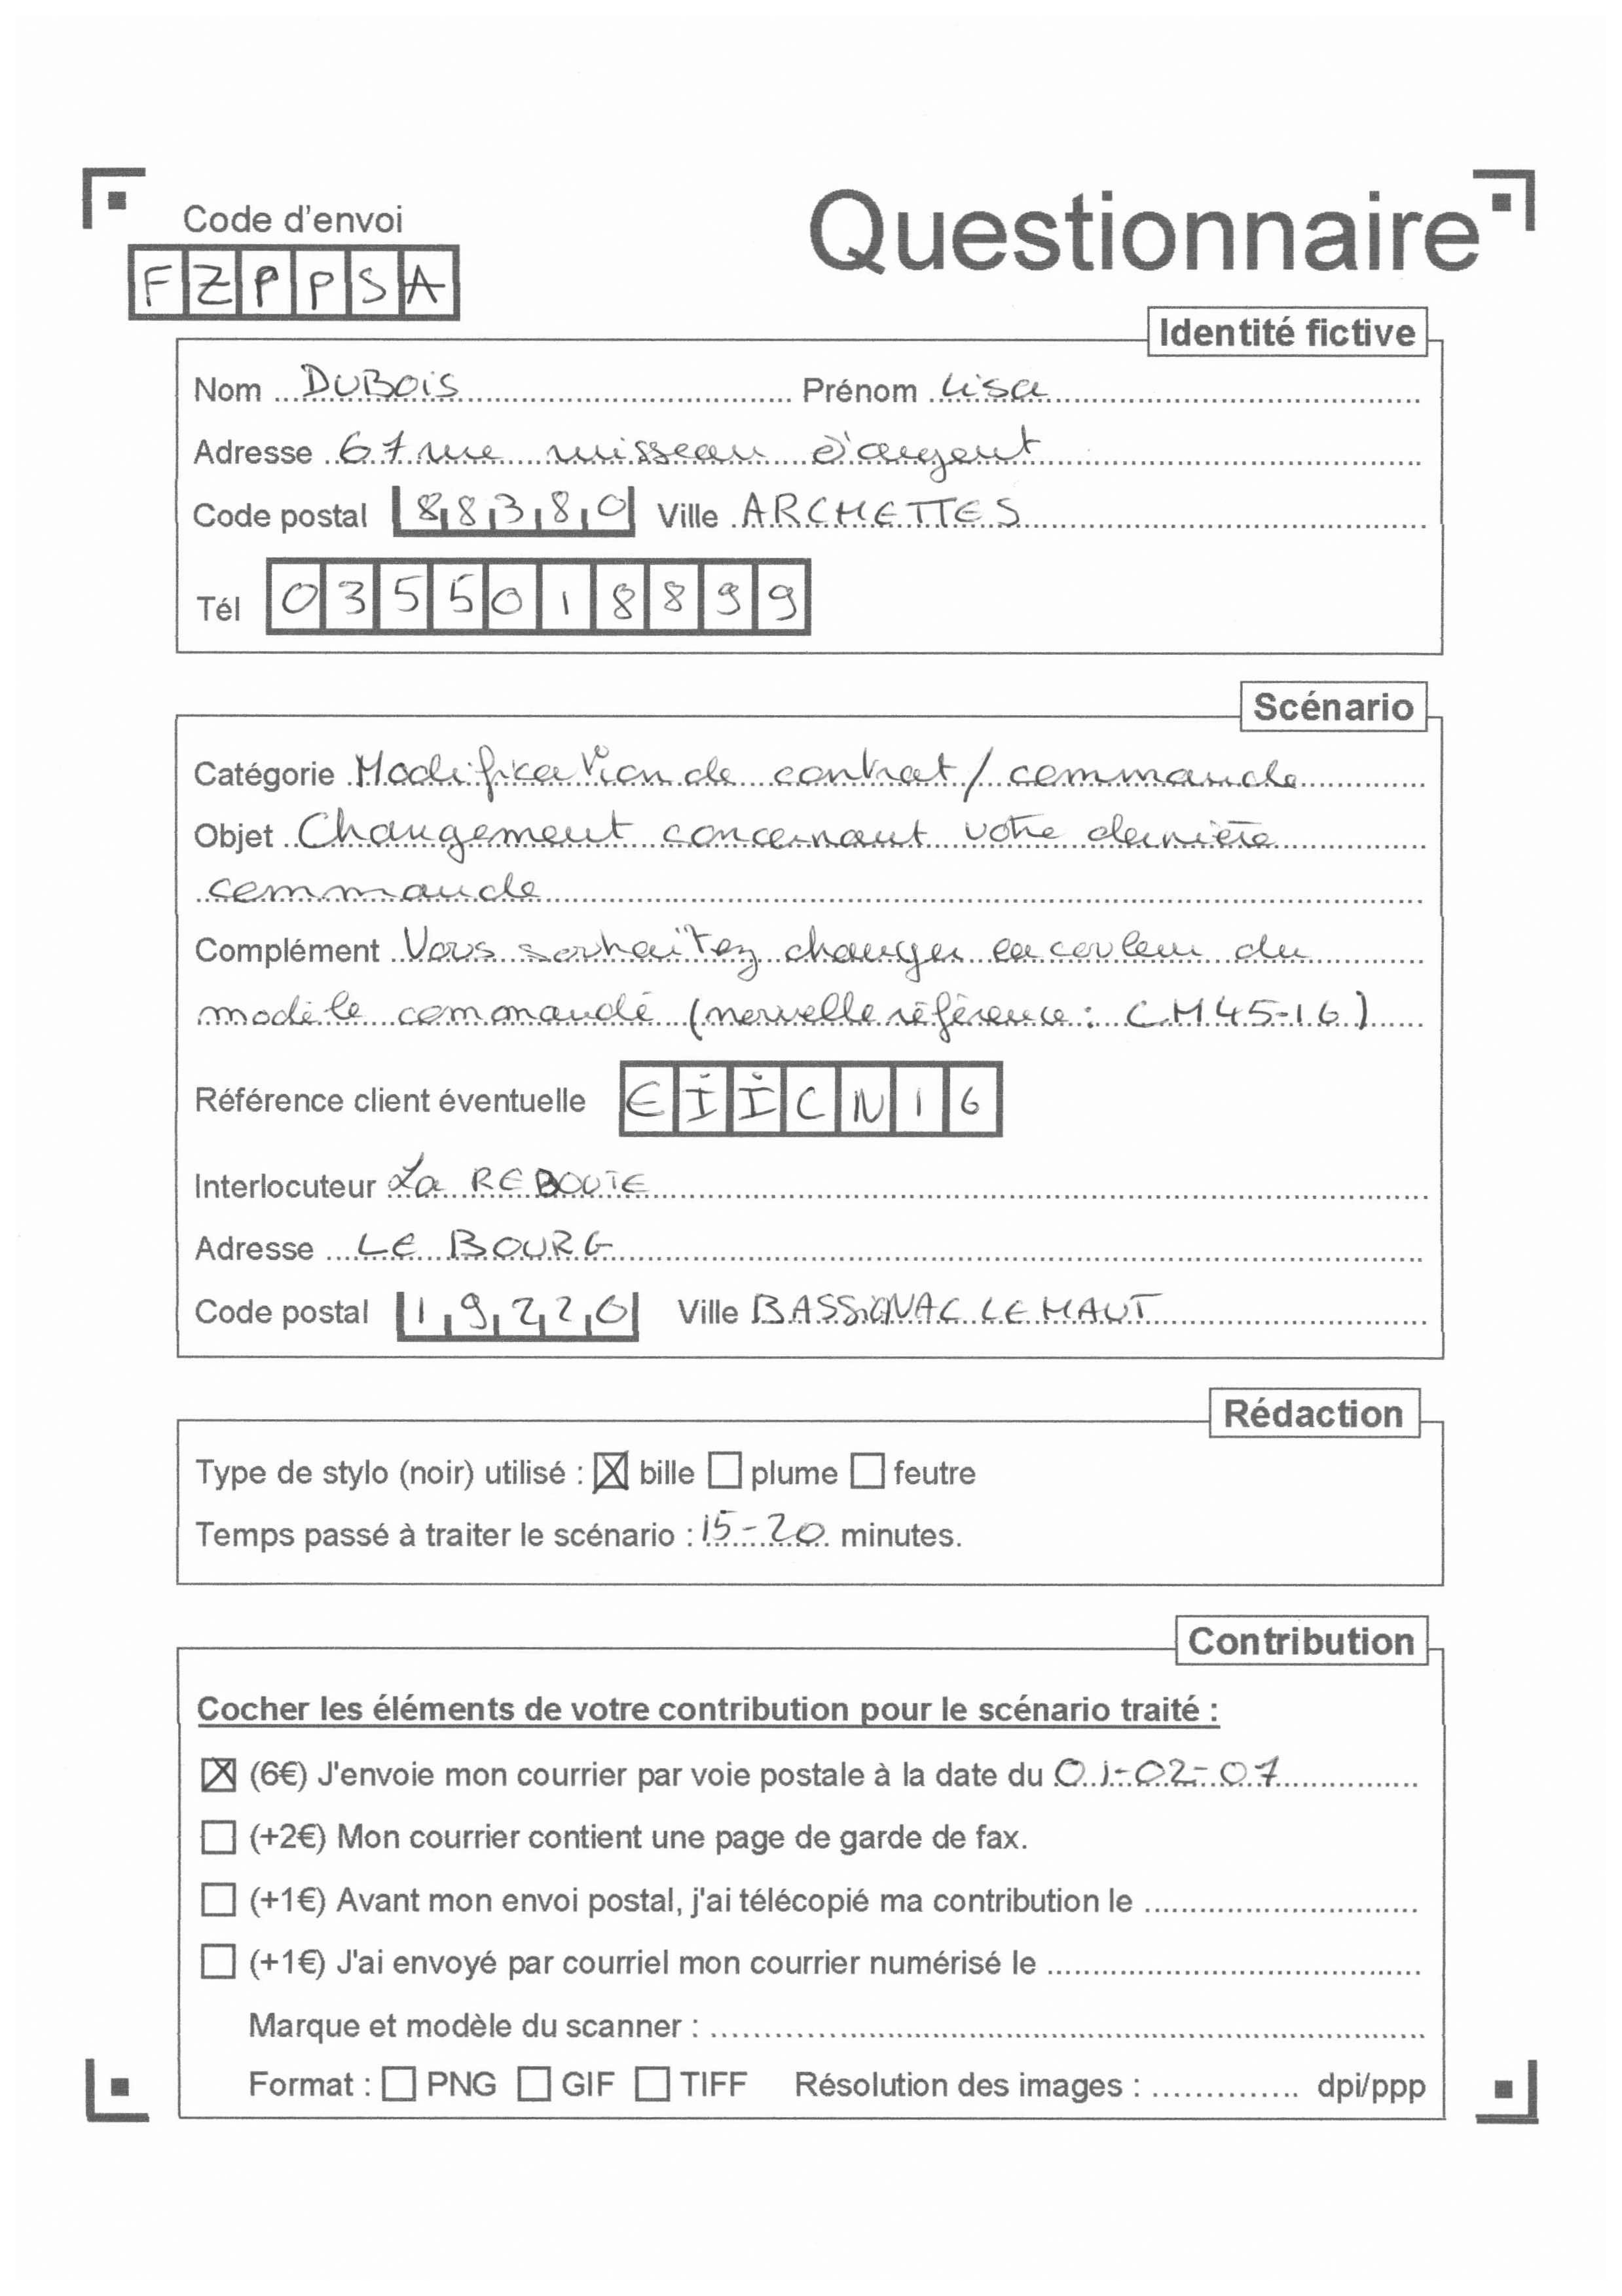 Code d'envoi
Questionnaire
FZPPSA
Identité fictive
Nom DUBOIS Prénom Lisa
Adresse 67 rue ruisseau d'argent
Code postal 88380 Ville ARCHETTES
Tél 0355018899
Scénario
Catégorie Modification de contrat / commande
Objet Changement concernant votre dernière
commande
Complément Vous souhaitez changer la couleur du
modèle commandé (nouvelle référence : CM45-16)
Référence client éventuelle EIICN16
Interlocuteur La REDOUTE
Adresse LE BOURG
Code postal 19220 Ville BASSIGNAC LE HAUT
Rédaction
Type de stylo (noir) utilisé : ☒ bille ☐ plume ☐ feutre
Temps passé à traiter le scénario : 15-20 minutes.
Contribution
Cocher les éléments de votre contribution pour le scénario traité :
☒ (6€) J'envoie mon courrier par voie postale à la date du 01-02-07
☐ (+2€) Mon courrier contient une page de garde de fax.
☐ (+1€) Avant mon envoi postal, j'ai télécopié ma contribution le
☐ (+1€) J'ai envoyé par courriel mon courrier numérisé le
Marque et modèle du scanner :
Format : ☐ PNG ☐ GIF ☐ TIFF Résolution des images : dpi/ppp